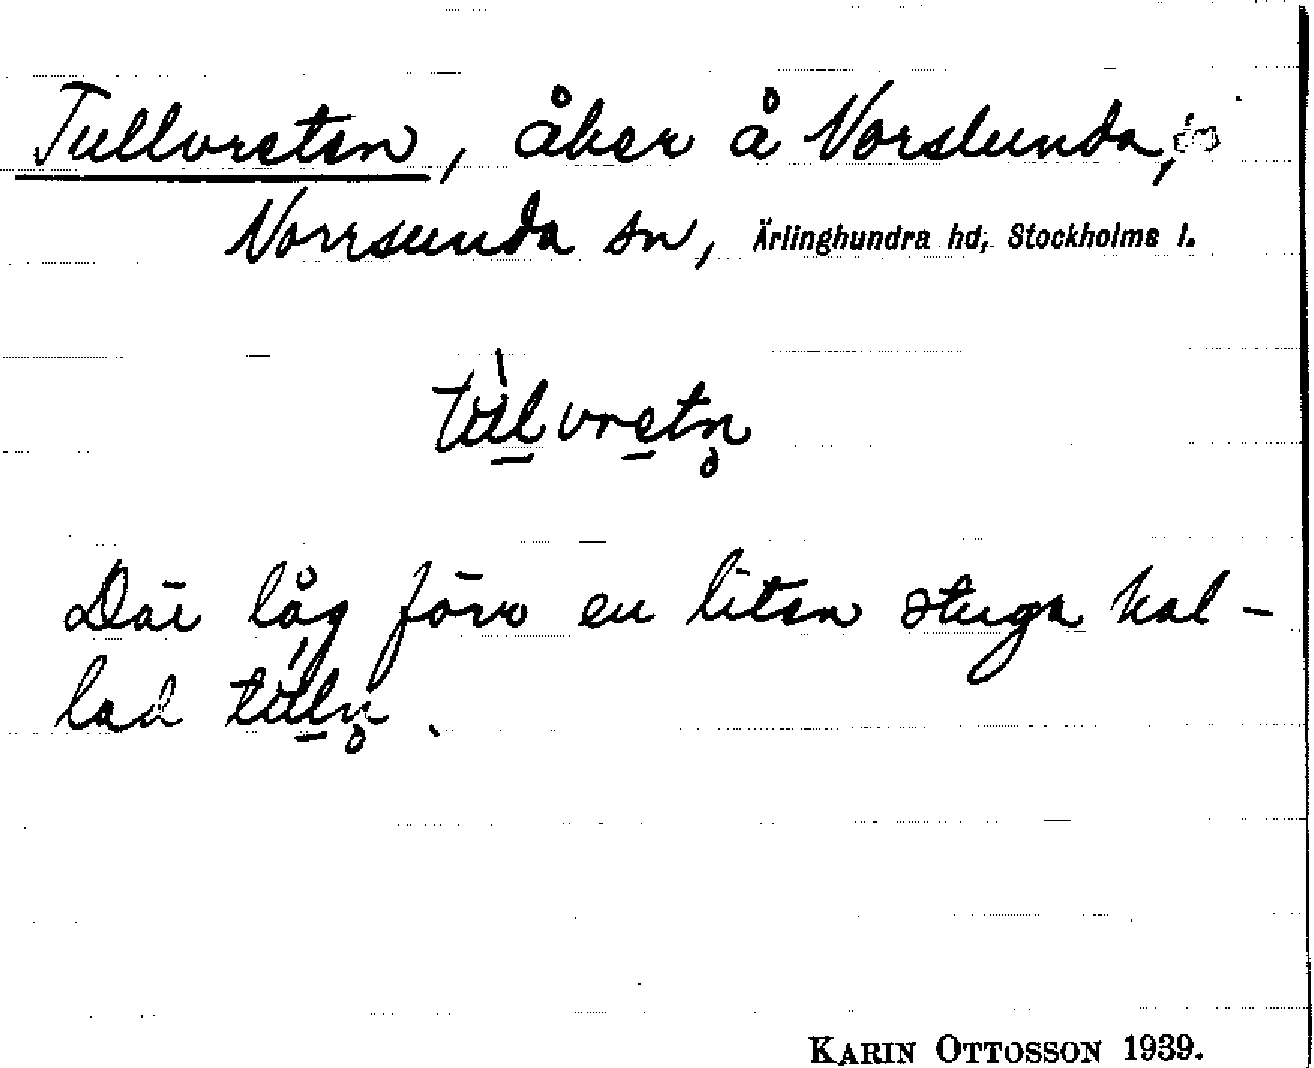 Tullvreten, åker å Norslunda,
Norrsunda sn, Ärlinghundra hd, Stockholms l.
tu̱̇̀lvre̱tn̥
Där låg förr en liten stuga kal-
lad tu̱̇́ln̥.
KARIN OTTOSSON 1939.